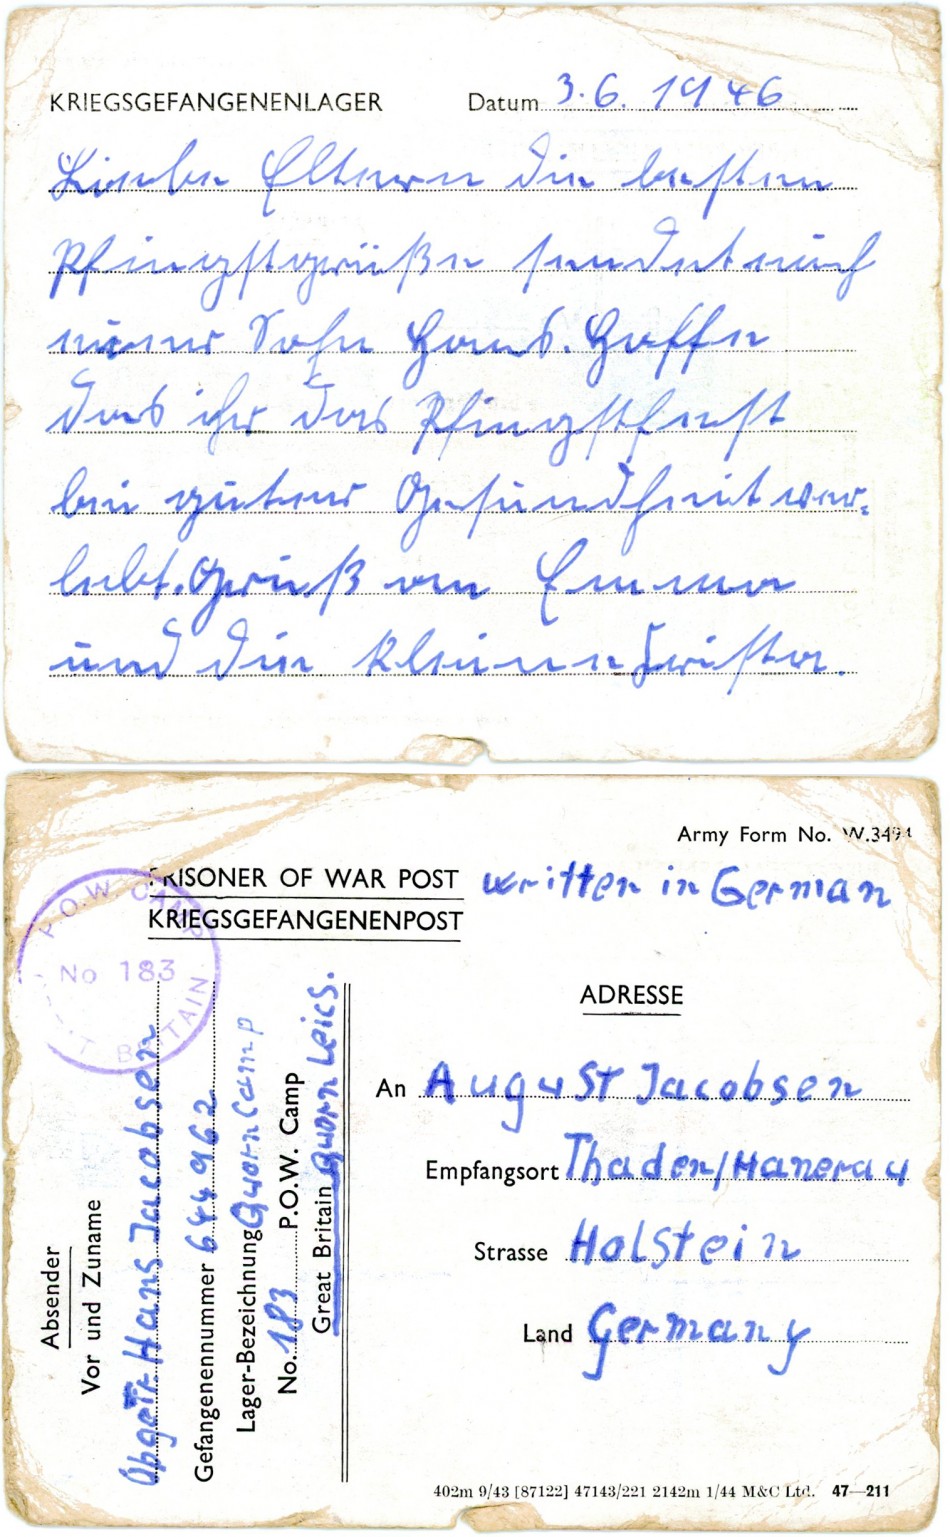 KRIEGSGEFANGENENLAGER Datum 3.6. 1946
Liebe Eltern die besten
Pfingstgrüße sendet euch
euer Sohn Hans. Hoffe
das ihr das Pfingstfest
bei guter Gesundheit ver-
lebt. Gruß an Emma
und die kleine
Army Form No. W.3494
PRISONER OF WAR POST written in German
KRIEGSGEFANGENENPOST
P.O.W. CAMP
No 183
BRITAIN
Absender
Vor und Zuname
Obgefr Hans Jacobsen
Gefangenennummer 644962
Lager-Bezeichnung Quorn Camp
No. 183 P.O.W. Camp
Great Britain Quorn Leics.
ADRESSE
An August Jacobsen
Empfangsort Thaden/Hanerau
Strasse Holstein
Land Germany
402m 9/43 [87122] 47143/221 2142m 1/44 M&C Ltd. 47—211